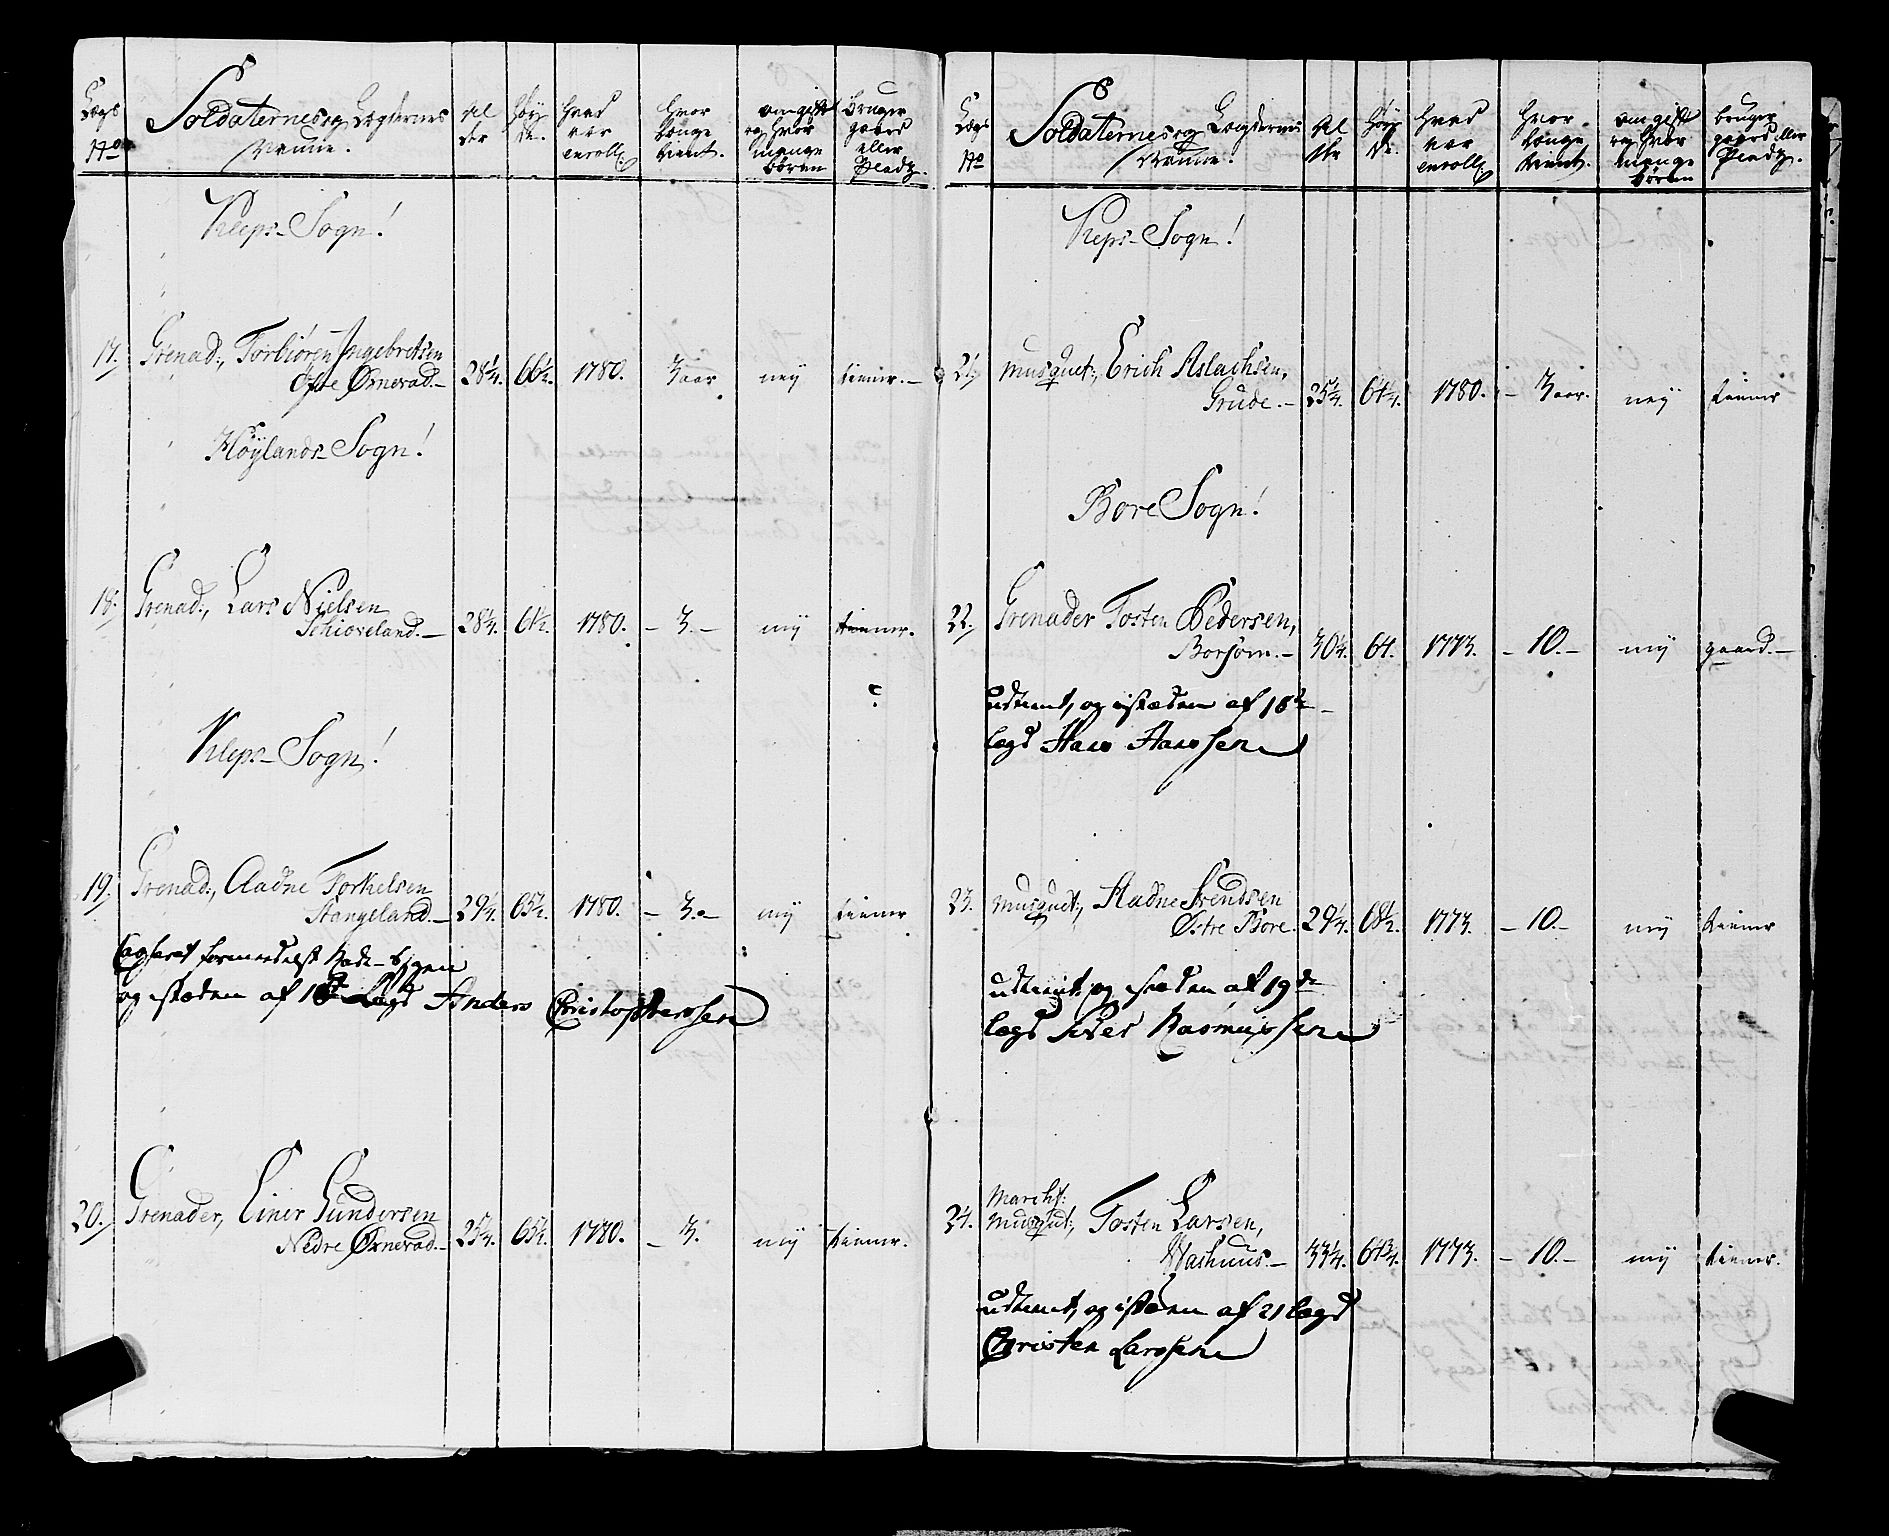 Lægs No
Soldaternes og Lægdernes Navne.
Al der
Höÿ de.
Hvad aar enroll:
Hvor længe tient.
om gift og hvor mange börn
bruger gaard eller Pladz.
Kleps-Sogn!
17. Grenad:, Torbiören Ingebretsen
Öfre Ørnevad.- 28 1/4. 66 1/2. 1780. 3 aar ney tiener.-
Höÿlands-Sogn!
18. Grenad:, Lars Nielsen
Schioveland.- 28 1/4. 61 1/2. 1780. - 3.- neÿ tiener.
Kleps-Sogn!
19. Grenad:, Aadne Torkelsen
Stangeland.- 29 1/4. 65 1/2. 1780. - 3.- neÿ tiener
Casseret formedelst
og istæden af Lægd Anders Christophersen
20. Grenader, Einer Gundersen
Nedre Ørnevad.- 25 1/4. 65 1/2. 1780. - 3. neÿ tiener.
Lægs No
Soldaternes og Lægdernes Navne.
Al der
Höÿ de.
Hvad aar enroll:
Hvor længe tient.
om gift og hvor mange börn
bruger gaard eller Pladz.
Kleps-Sogn!
21. Musquet:, Erich Aslachsen,
Grude.- 25 1/4. 64 1/4. 1780. - 3 aar. neÿ tiener
Bore Sogn!
22. Grenader Tosten Pedersen,
Borsom.- 30 1/4. 64. 1773. - 10.- neÿ gaard.-
udtient, og istæden af 18de
lægd Hans Hansen
23. Musquet:, Aadne Svendsen
Østre Bore. 29 1/4. 68 1/2. 1773. - 10.- neÿ tiener
udtient og istæden af 19de
lægd Siver Rasmussen
24. Marcht:
Musquet:, Tosten Larsen,
Washuus.- 33 1/4. 64 3/4. 1773. - 10.- neÿ tiener.
udtient, og istæden af 21 lægd
Christen Larsen